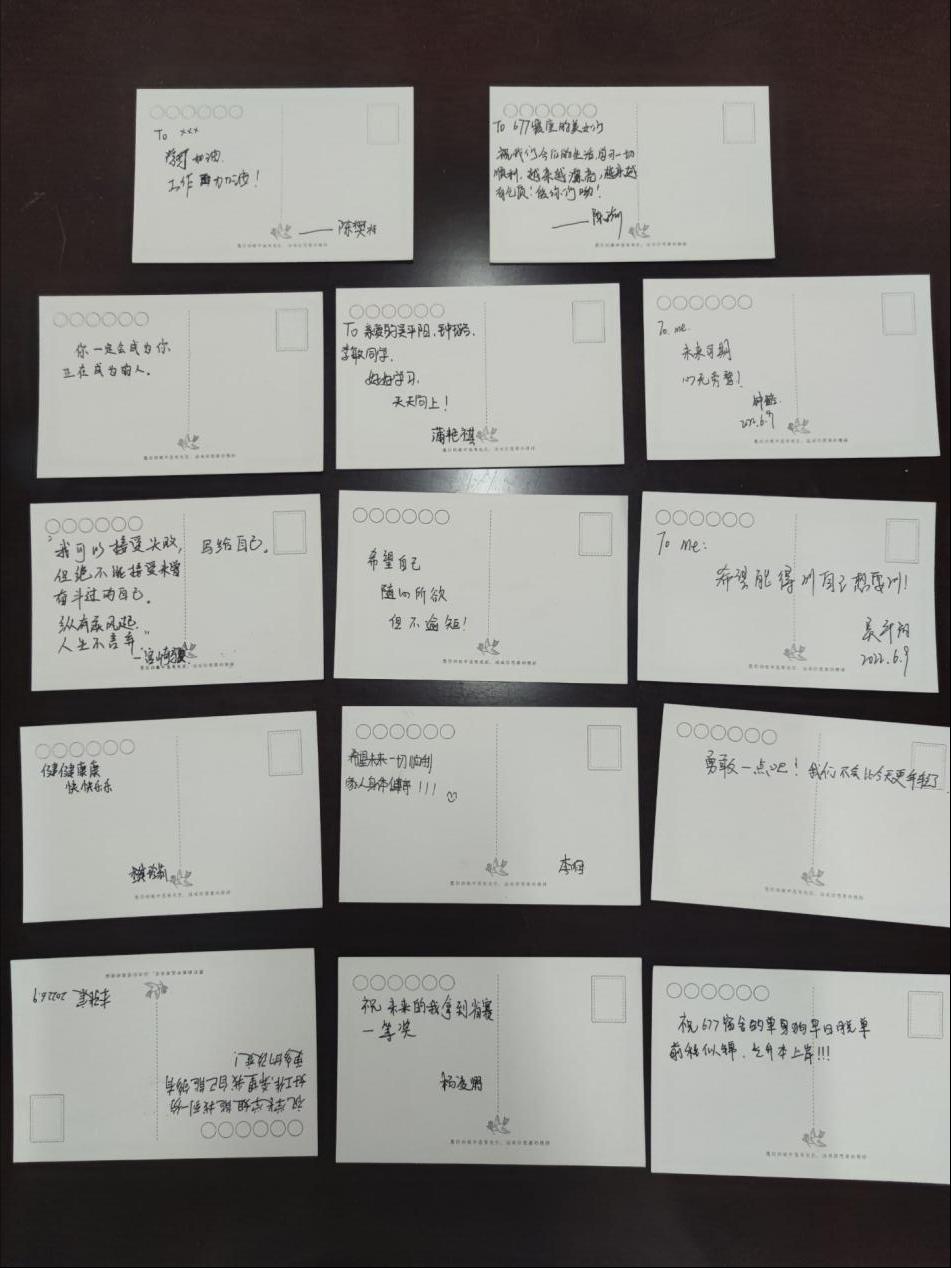 To xxx
加油.
工作 努力加波!
——陈樊
To 677寝室的美女们
祝我们今后的生活,学习一切
顺利,越来越漂亮,越来越
有气质!爱你们呦!
——陈
你一定会成为你
正在成为的人。
To 亲爱的吴平阳、钟璐璐、
李敏同学,
好好学习,
天天向上!
蒲艳祺
To me.
未来可期
心无旁骛!
2022.6.9
"我可以接受失败, 写给自己。
但绝不能接受未曾
奋斗过的自己。
纵有疾风起
人生不言弃"
希望自己
随心所欲
但不逾矩!
To me:
希望能得到自己想要的!
2022.6.9
健健康康
快快乐乐
希望未来一切顺利
家人身体健康!!!
李
勇敢一点吧!我们不会比今天更年轻了
祝学长学姐能找到一份
好工作,希望我自己能够有
更多的改变!
2022.6.9
祝 未来的我拿到省赛
一等奖
杨凌
祝677宿舍的单身狗早日脱单
前程似锦,专升本上岸!!!